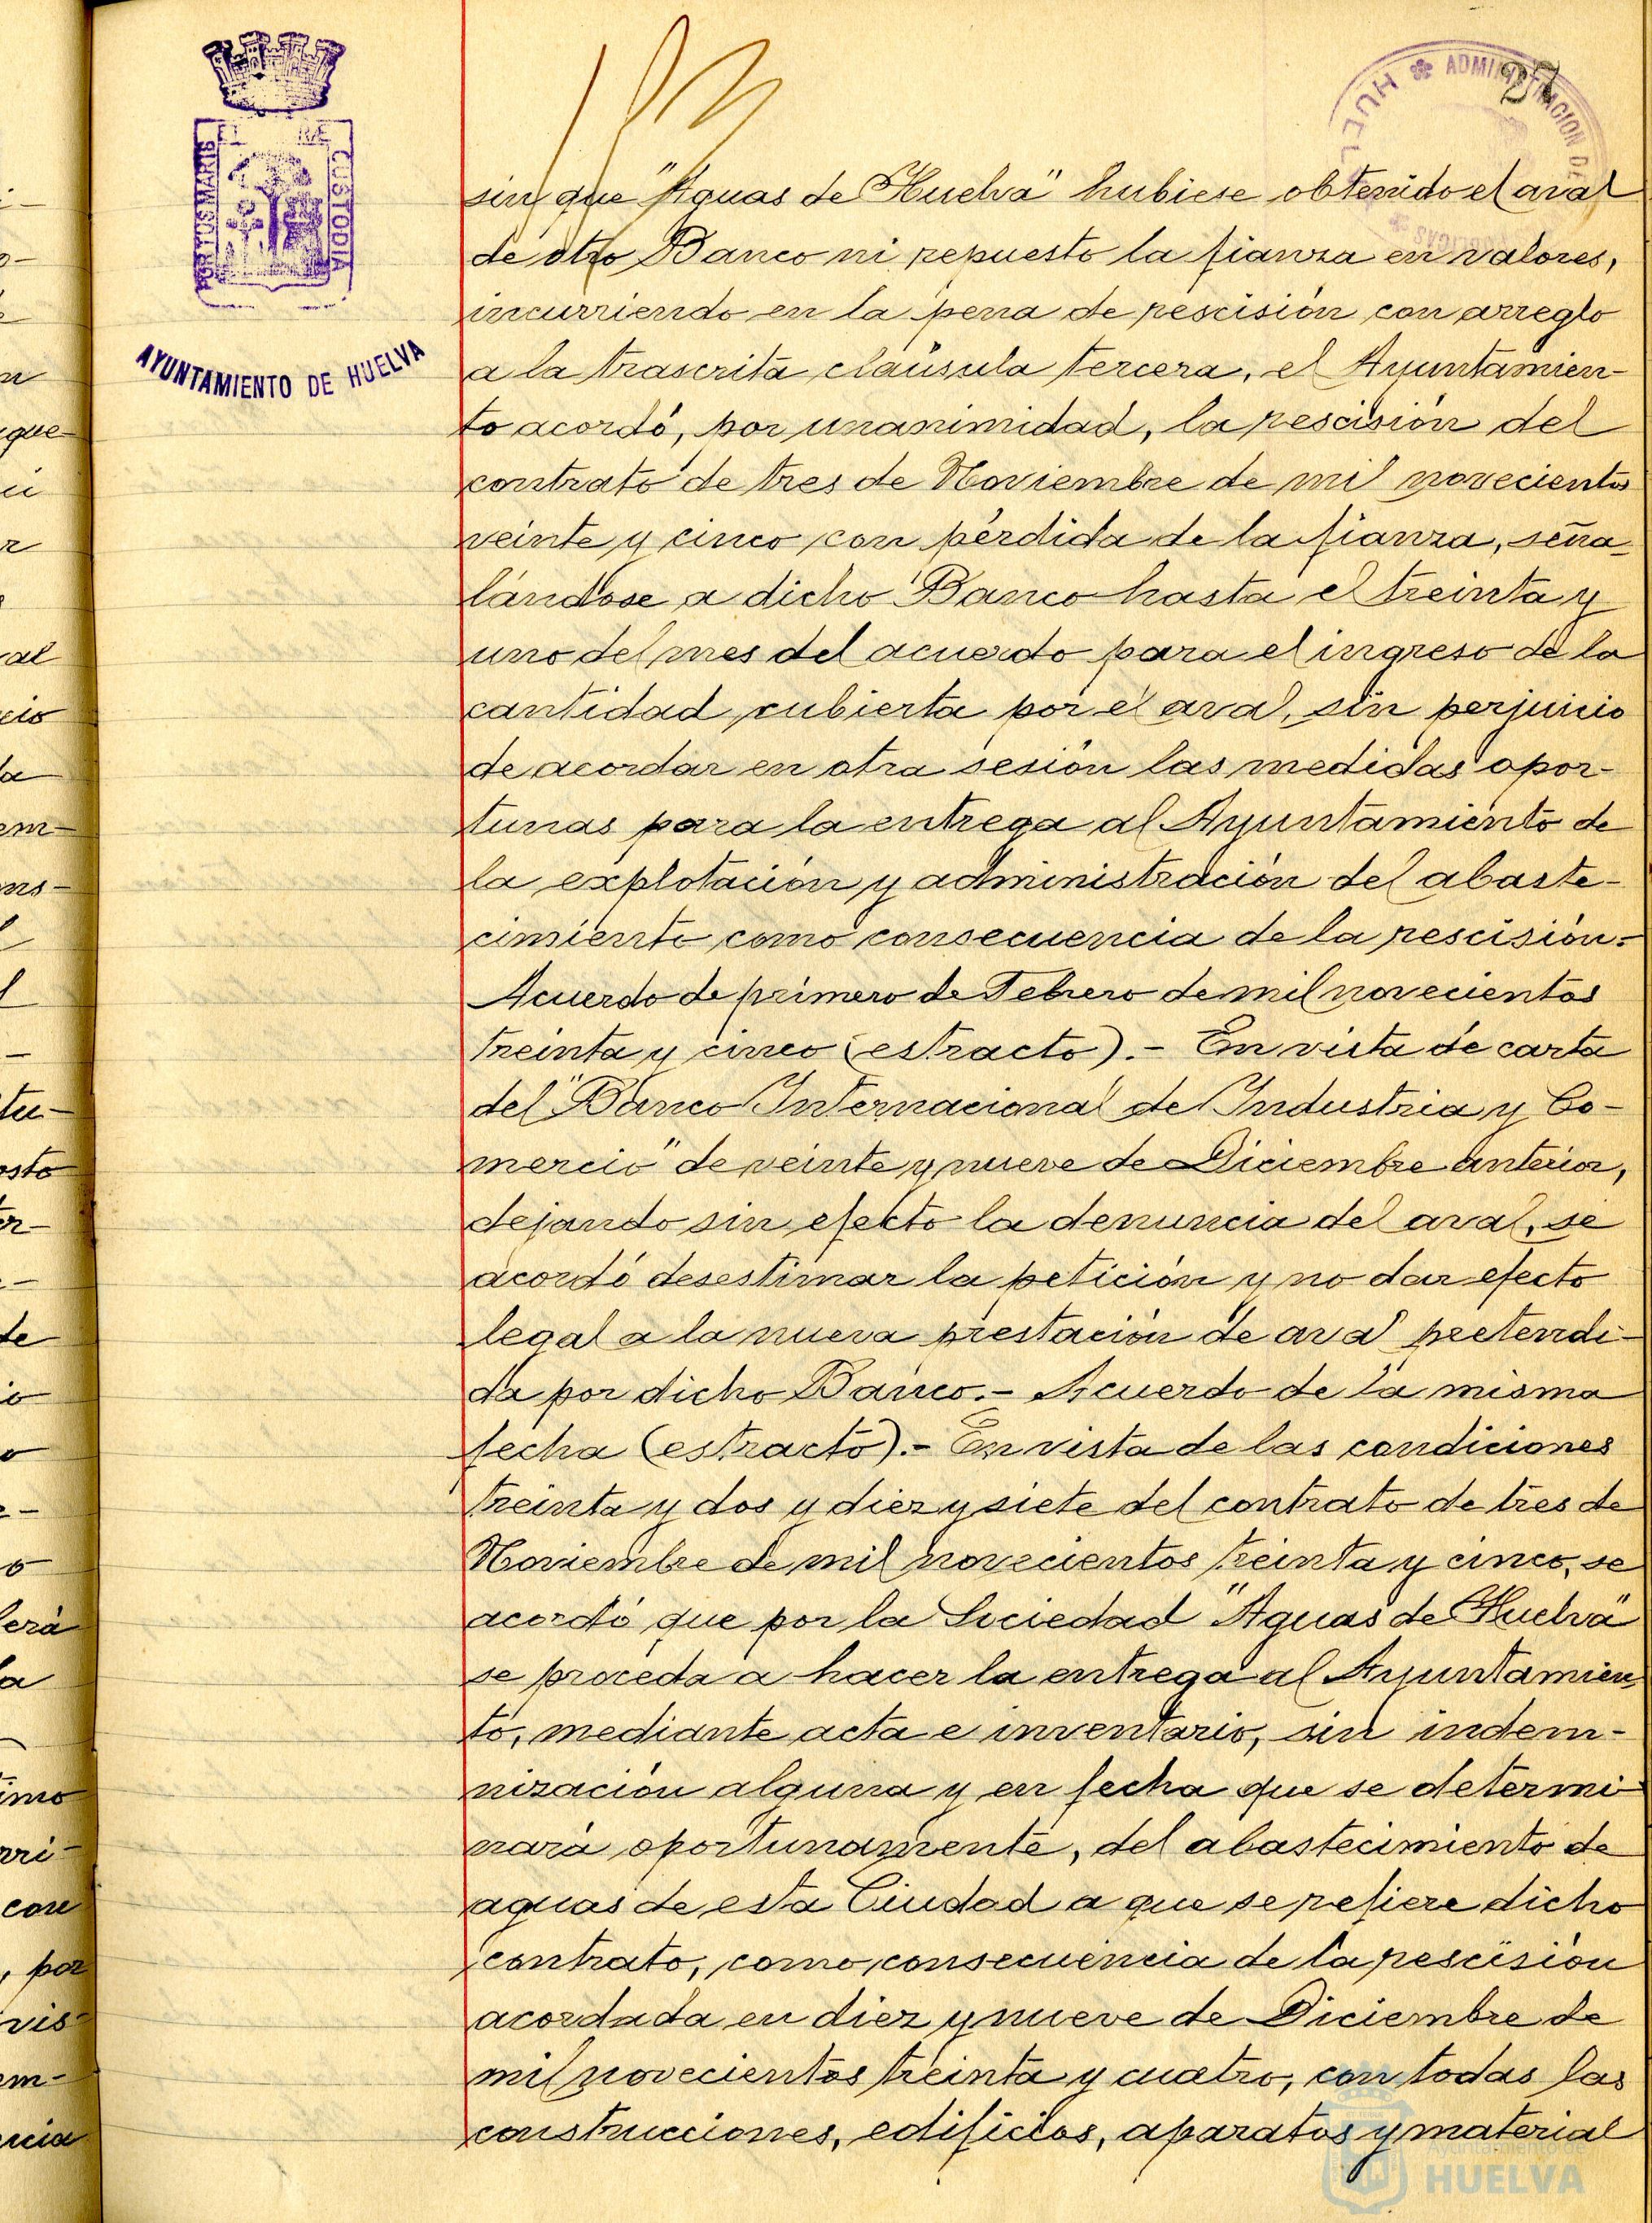 27
HUELVA ADMINISTRACION DE
EL
PORTUS MARIS
CUSTODIA
AYUNTAMIENTO DE HUELVA
sin que "Aguas de Huelva" hubiese obtenido el aval
de otro Banco ni repuesto la fianza en valores,
incurriendo en la pena de rescisión con arreglo
a la trascrita cláusula tercera, el Ayuntamien-
to acordó, por unanimidad, la rescisión del
contrato de tres de Noviembre de mil novecientos
veinte y cinco con pérdida de la fianza, seña-
lándose a dicho Banco hasta el treinta y
uno del mes del acuerdo para el ingreso de la
cantidad cubierta por el aval, sin perjuicio
de acordar en otra sesión las medidas opor-
tunas para la entrega al Ayuntamiento de
la explotación y administración del abaste-
cimiento como consecuencia de la rescisión.-
Acuerdo de primero de Febrero de mil novecientos
treinta y cinco (estracto).- En vista de carta
del "Banco Internacional de Industria y Co-
mercio" de veinte y nueve de Diciembre anterior,
dejando sin efecto la denuncia del aval, se
acordó desestimar la petición y no dar efecto
legal a la nueva prestación de aval pretendi-
da por dicho Banco.- Acuerdo de la misma
fecha (estracto).- En vista de las condiciones
treinta y dos y diez y siete del contrato de tres de
Noviembre de mil novecientos treinta y cinco, se
acordó que por la Sociedad "Aguas de Huelva"
se proceda a hacer la entrega al Ayuntamien-
to, mediante acta e inventario, sin indem-
nización alguna y en fecha que se determi-
nará oportunamente, del abastecimiento de
aguas de esta Ciudad a que se refiere dicho
contrato, como consecuencia de la rescisión
acordada en diez y nueve de Diciembre de
mil novecientos treinta y cuatro, con todas las
construcciones, edificios, aparatos y material
Ayuntamiento de
HUELVA